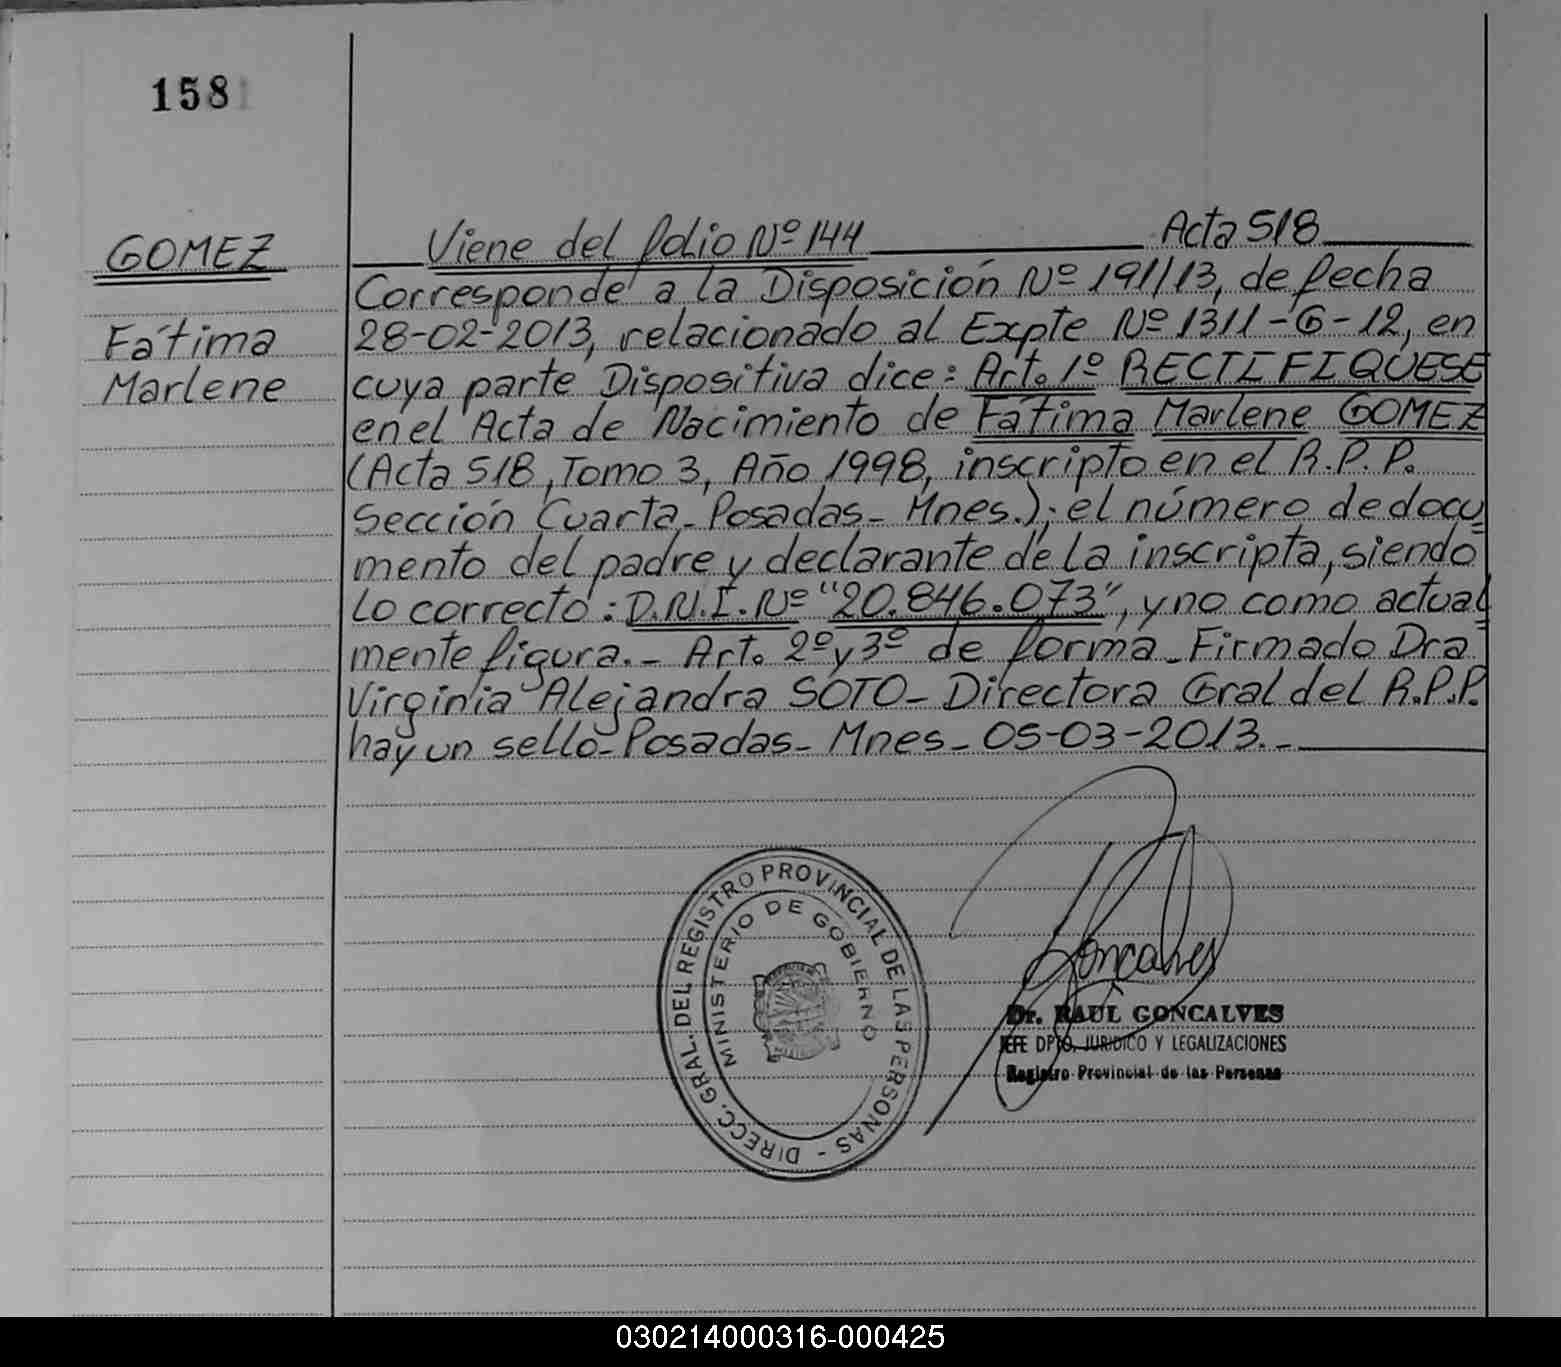 158
GOMEZ
Fátima
Marlene
Viene del folio Nº 144 Acta 518
Corresponde a la Disposición Nº 191/13, de fecha
28-02-2013, relacionado al Expte Nº 1311-G-12, en
cuya parte Dispositiva dice: Art. 1º RECTIFIQUESE
en el Acta de Nacimiento de Fátima Marlene GOMEZ
(Acta 518, Tomo 3, Año 1998, inscripto en el R.P.P.
Sección Cuarta- Posadas- Mnes.); el número de docu-
mento del padre y declarante de la inscripta, siendo
lo correcto: D.N.I. Nº "20.846.073", y no como actual-
mente figura.- Art. 2º y 3º de forma- Firmado Dra
Virginia Alejandra SOTO- Directora Gral del R.P.P.
hay un sello- Posadas- Mnes- 05-03-2013.-
DIRECC. GRAL. DEL REGISTRO PROVINCIAL DE LAS PERSONAS -
MINISTERIO DE GOBIERNO
Goncalves
Dr. RAUL GONCALVES
JEFE DPTO. JURIDICO Y LEGALIZACIONES
Registro Provincial de las Personas
030214000316-000425